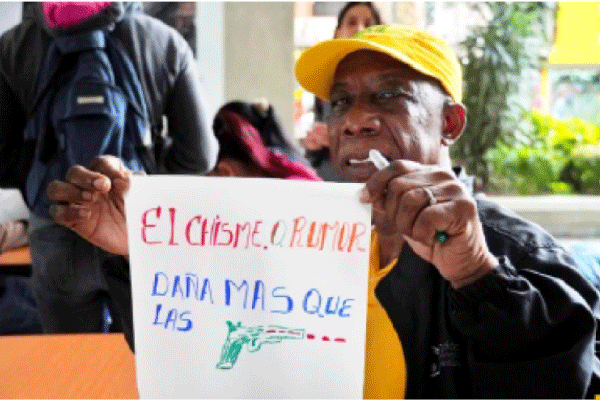 El CHISME. O RUMOR
DAÑA MAS QUE
LAS